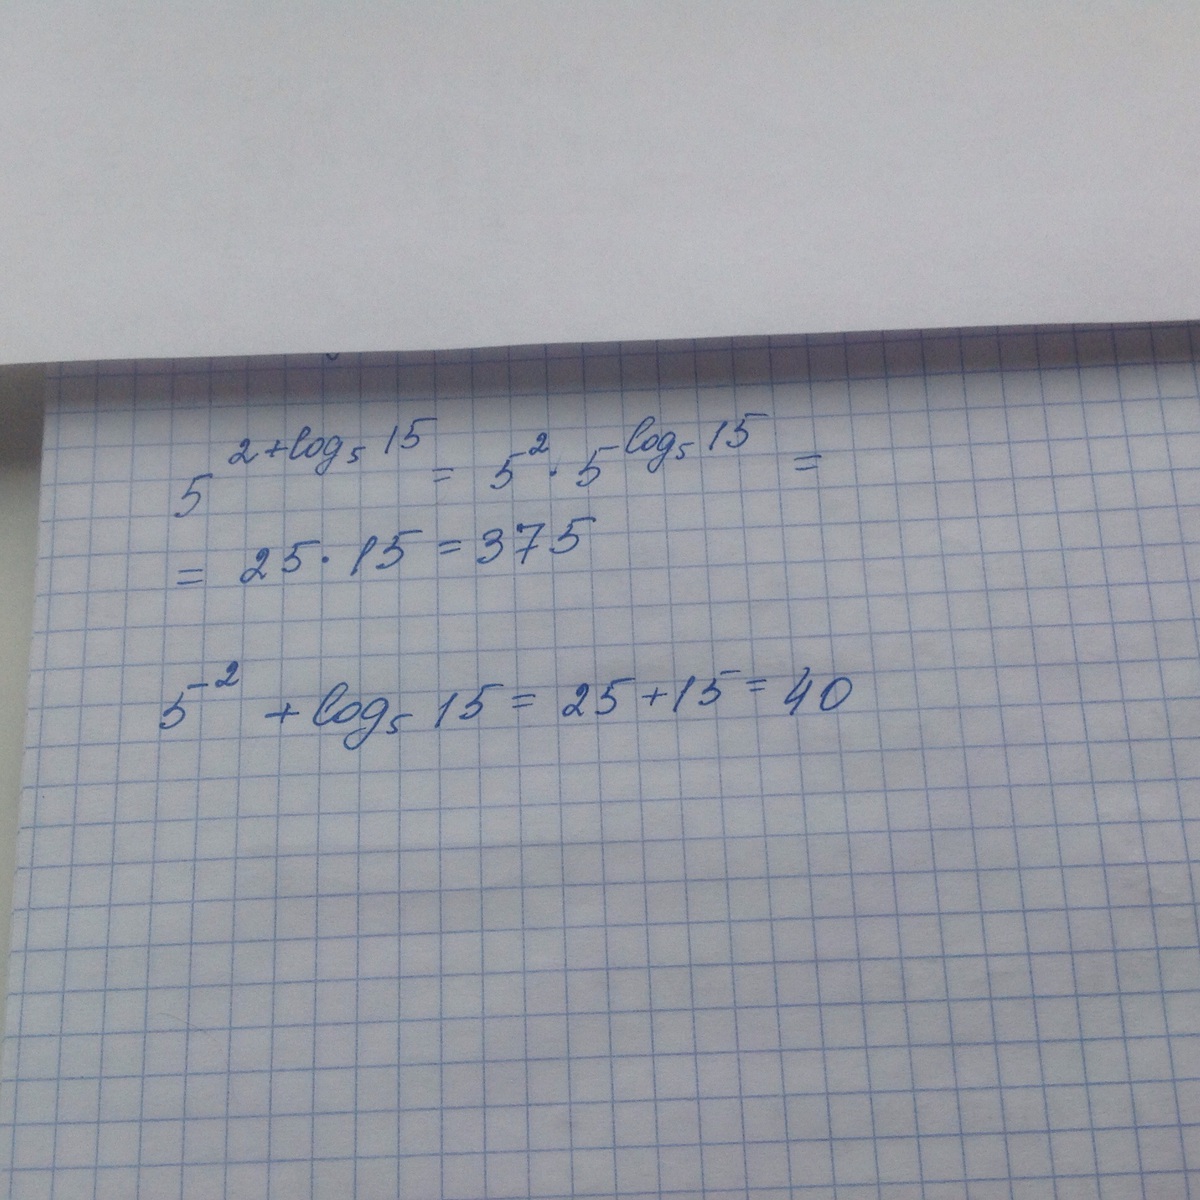 5^{2+log₅ 15} = 5² · 5^{log₅ 15} =
= 25 · 15 = 375
5² + log₅ 15 = 25 + 15 = 40